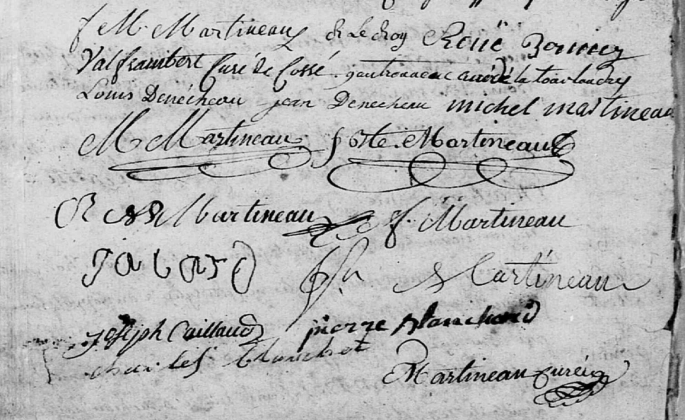 f M Martineau R Le Roy René
Valframbert Curé de Cossé gautronneau curé de la tourlandry
Louis Denécheau jean Denecheau michel martineau
M Martineau f H Martineau
R Martineau f. Martineau
Martineau
Joseph Caillaud pierre blanchard
charles blanchet
Martineau curé